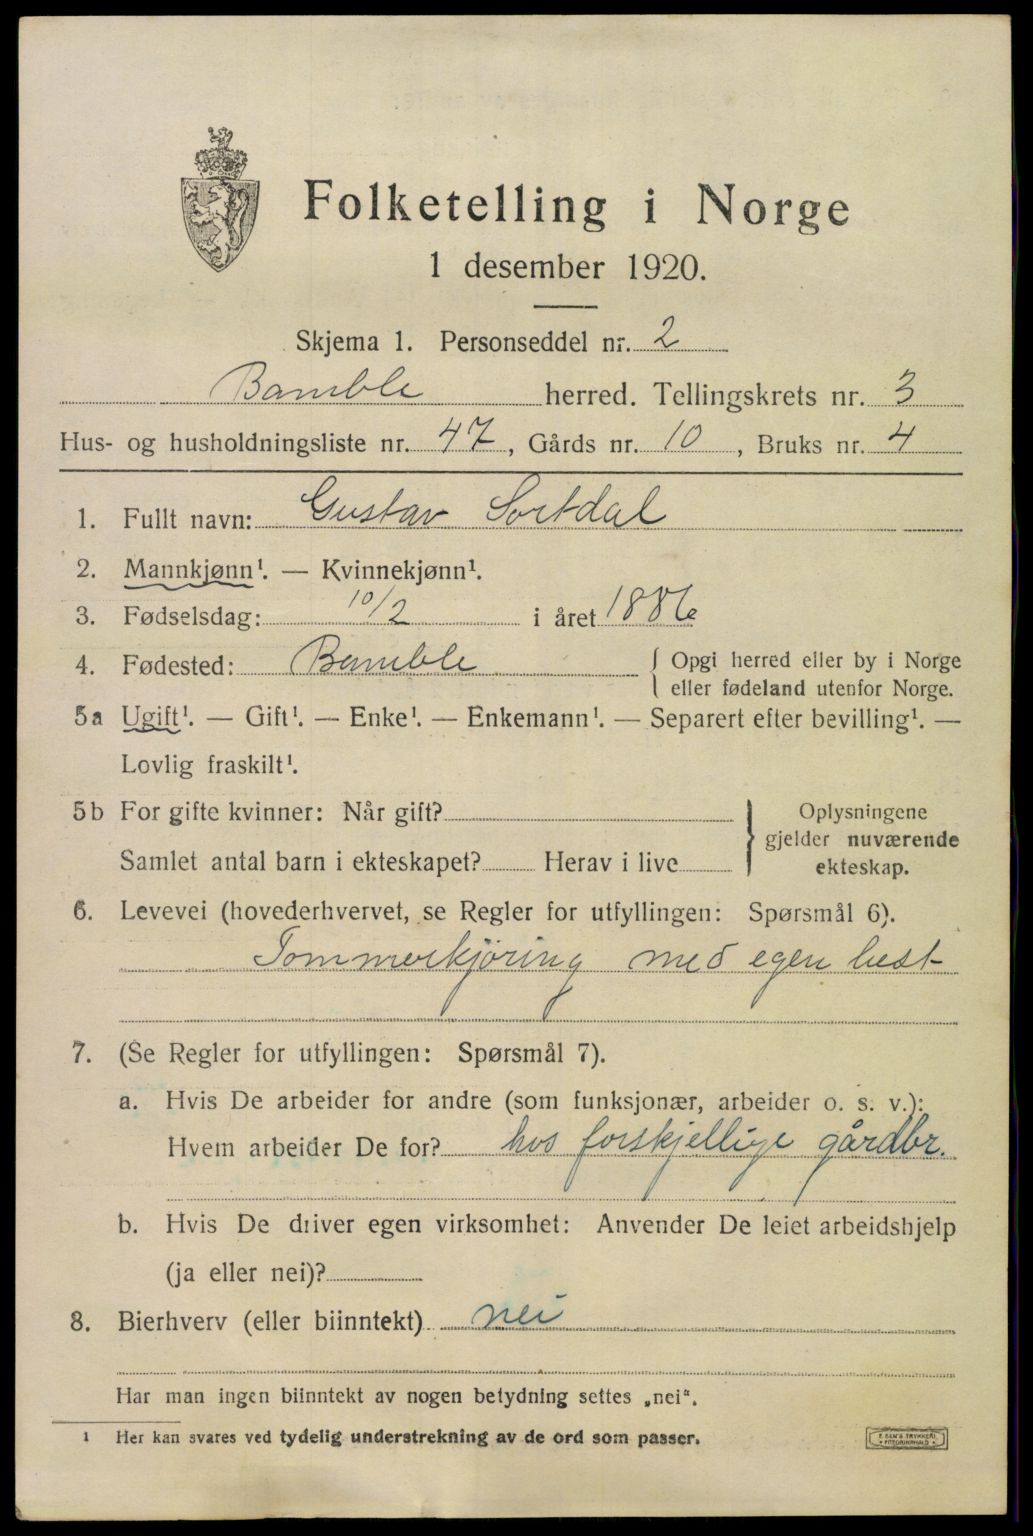 Folketelling i Norge
1 desember 1920.
Skjema 1. Personseddel nr. 2
Bamble herred. Tellingskrets nr. 3
Hus- og husholdningsliste nr. 47, Gårds nr. 10, Bruks nr. 4
1. Fullt navn: Gustav Sortdal
2. Mannkjønn¹. — Kvinnekjønn¹.
3. Fødselsdag: 10/2 i året 1886
4. Fødested: Bamble { Opgi herred eller by i Norge
eller fødeland utenfor Norge.
5a Ugift¹. — Gift¹. — Enke¹. — Enkemann¹. — Separert efter bevilling¹. —
Lovlig fraskilt¹.
5b For gifte kvinner: Når gift?
Samlet antal barn i ekteskapet? Herav i live
} Oplysningene
gjelder nuværende
ekteskap.
6. Levevei (hovederhvervet, se Regler for utfyllingen: Spørsmål 6).
Tommerkjøring med egen hest
7. (Se Regler for utfyllingen: Spørsmål 7).
a. Hvis De arbeider for andre (som funksjonær, arbeider o. s. v.):
Hvem arbeider De for? hos forskjellige gårdbr.
b. Hvis De driver egen virksomhet: Anvender De leiet arbeidshjelp
(ja eller nei)?
8. Bierhverv (eller biinntekt) nei
Har man ingen biinntekt av nogen betydning settes „nei".
¹ Her kan svares ved tydelig understrekning av de ord som passer.